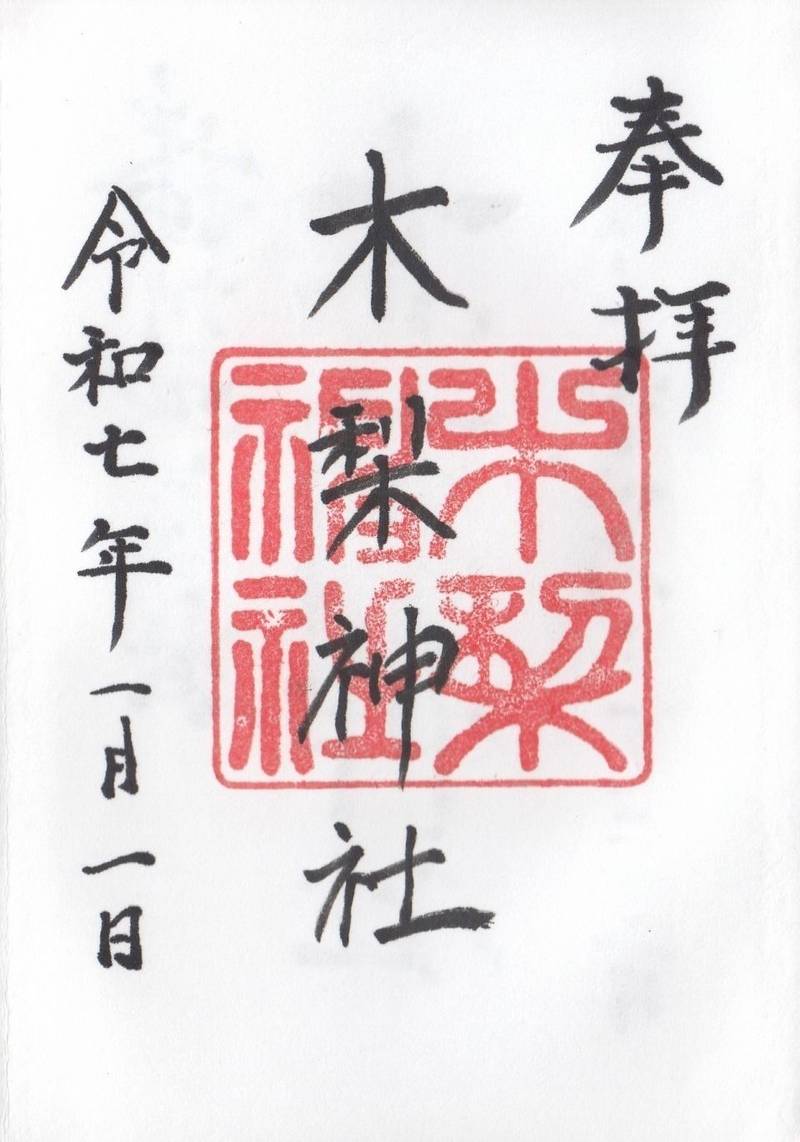 奉拝
木梨神社
木梨神社
令和七年一月一日